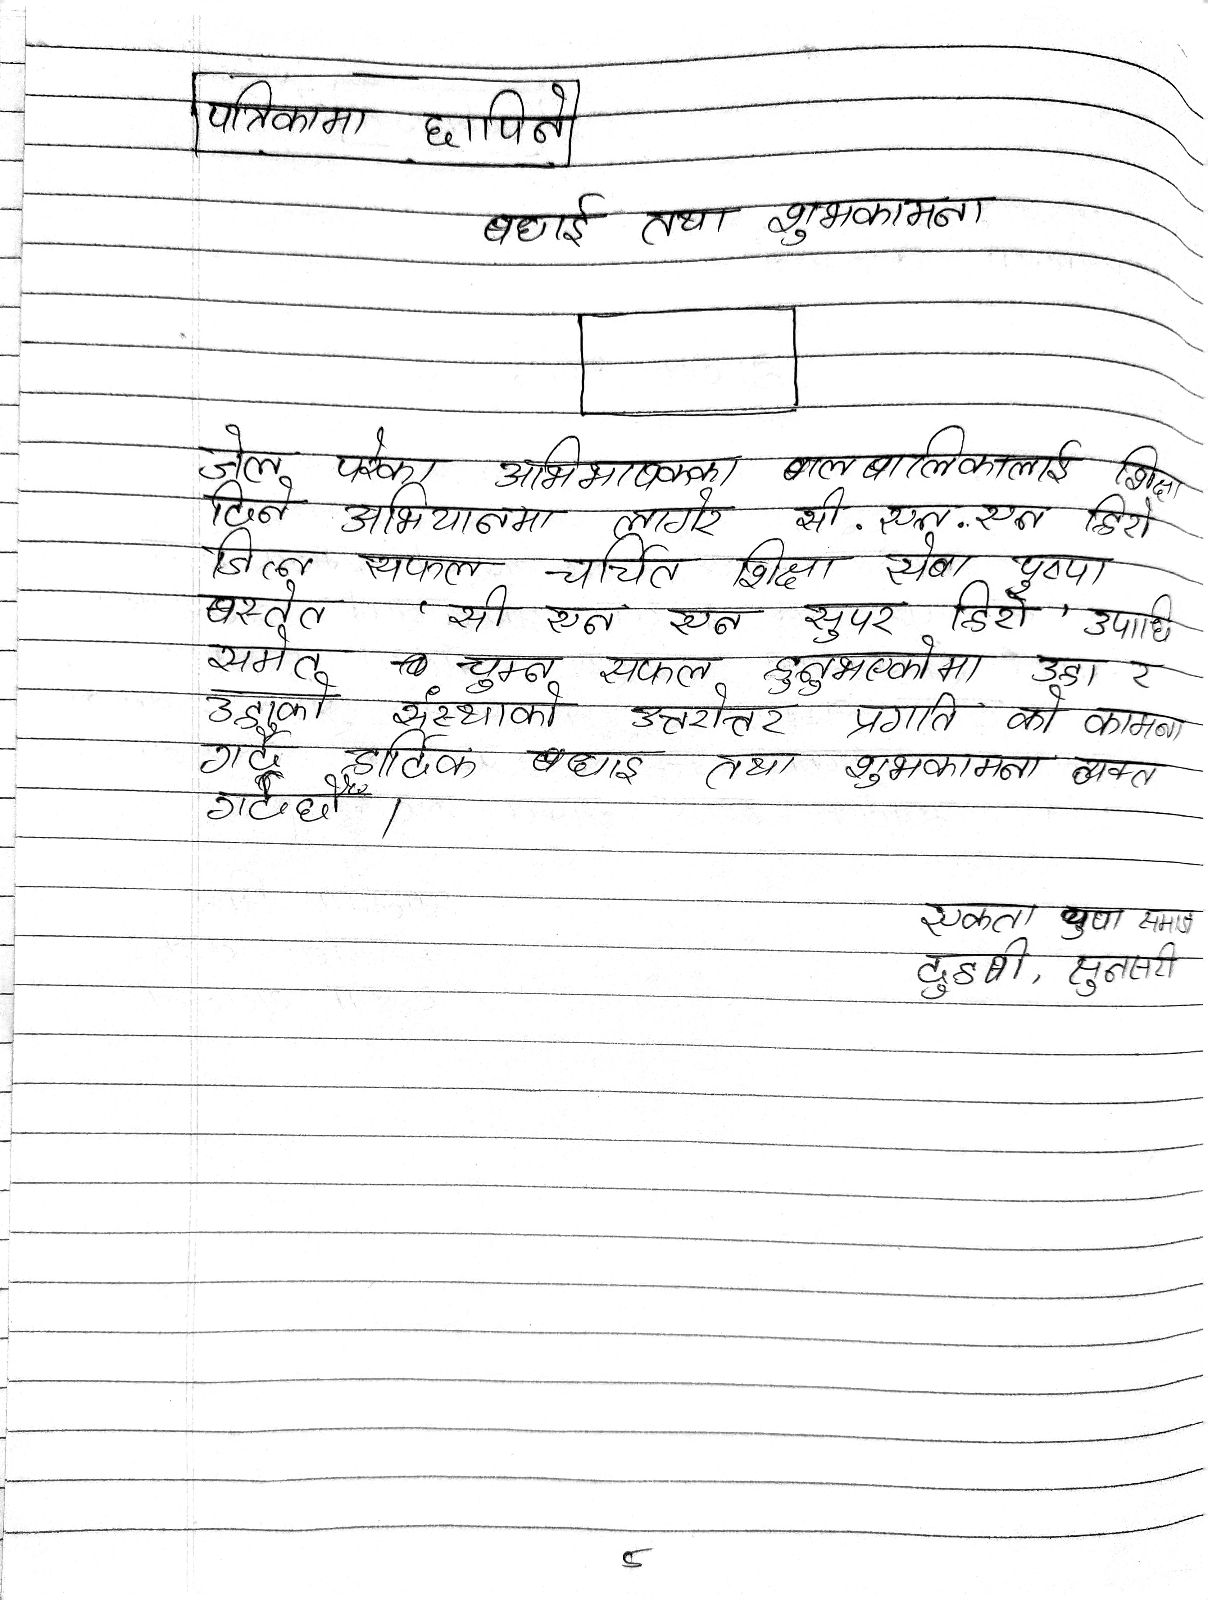 पत्रिकामा छापिने
बधाई तथा शुभकामना
जेल परेका अभिभावकका बालबालिकालाई शिक्षा
दिने अभियानमा लागेर सी.एन.एन हिरो
जित्न सफल चर्चित शिक्षा सेवा पुष्पा
बस्नेत 'सी एन एन सुपर हिरो' उपाधि
समेत चुम्न सफल हुनुभएकोमा उहा र
उहाको संस्थाको उत्तरोत्तर प्रगति को कामना
गर्दै हार्दिक बधाइ तथा शुभकामना व्यक्त
गर्दछौं ।
एकता युवा समाज
दुहबी, सुनसरी